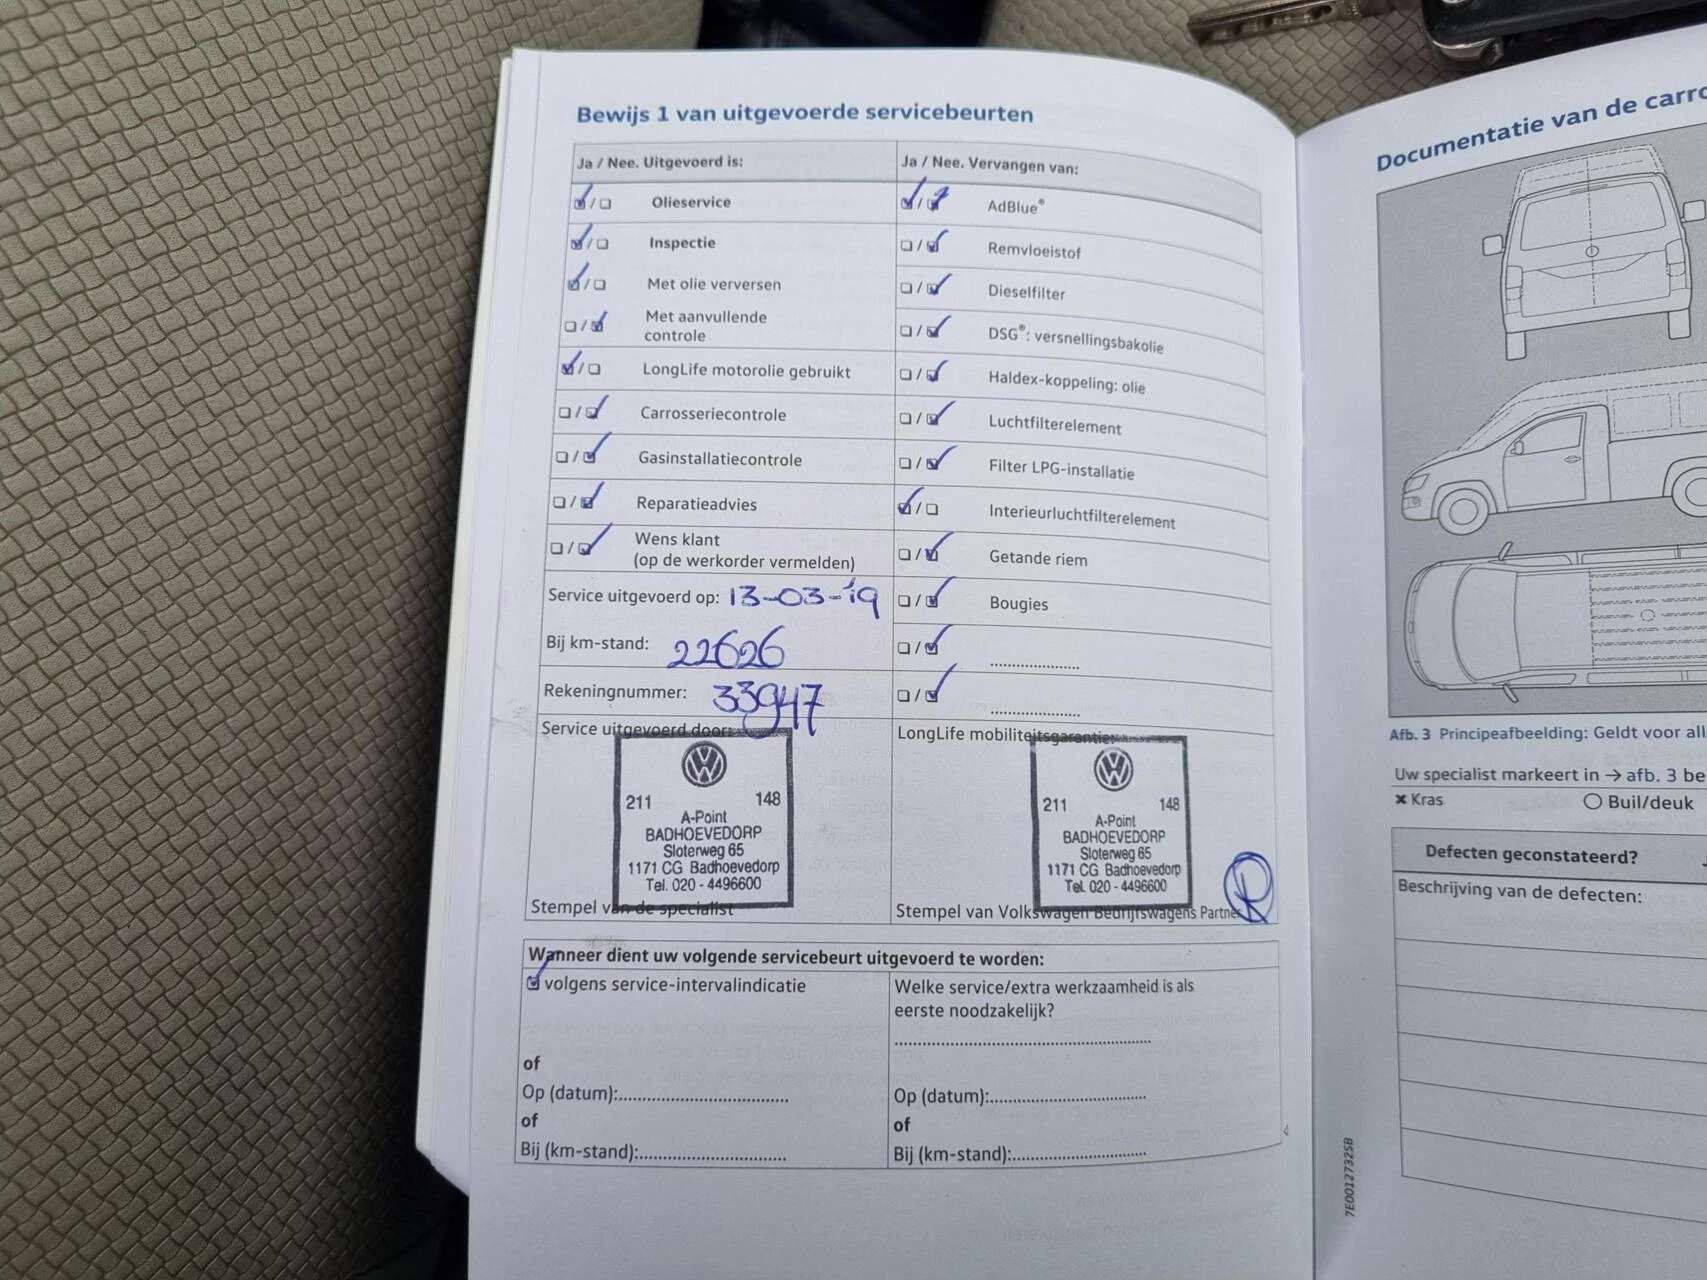 Bewijs 1 van uitgevoerde servicebeurten
Ja / Nee. Uitgevoerd is:
Olieservice
Inspectie
Met olie verversen
Met aanvullende
controle
LongLife motorolie gebruikt
Carrosseriecontrole
Gasinstallatiecontrole
Reparatieadvies
Wens klant
(op de werkorder vermelden)
Service uitgevoerd op: 13-03-19
Bij km-stand: 22626
Rekeningnummer: 33947
Service uitgevoerd door:
211 148
A-Point
BADHOEVEDORP
Sloterweg 65
1171 CG Badhoevedorp
Tel. 020 - 4496600
Stempel van de specialist
Ja / Nee. Vervangen van:
AdBlue®
Remvloeistof
Dieselfilter
DSG®: versnellingsbakolie
Haldex-koppeling: olie
Luchtfilterelement
Filter LPG-installatie
Interieurluchtfilterelement
Getande riem
Bougies
LongLife mobiliteitsgarantie:
211 148
A-Point
BADHOEVEDORP
Sloterweg 65
1171 CG Badhoevedorp
Tel. 020 - 4496600
Stempel van Volkswagen Bedrijfswagens Partner
Wanneer dient uw volgende servicebeurt uitgevoerd te worden:
volgens service-intervalindicatie
of
Op (datum):
of
Bij (km-stand):
Welke service/extra werkzaamheid is als
eerste noodzakelijk?
Op (datum):
of
Bij (km-stand):
7E0012732SB
Documentatie van de carro
Afb. 3 Principeafbeelding: Geldt voor all
Uw specialist markeert in → afb. 3 be
× Kras ○ Buil/deuk
Defecten geconstateerd?
Beschrijving van de defecten: